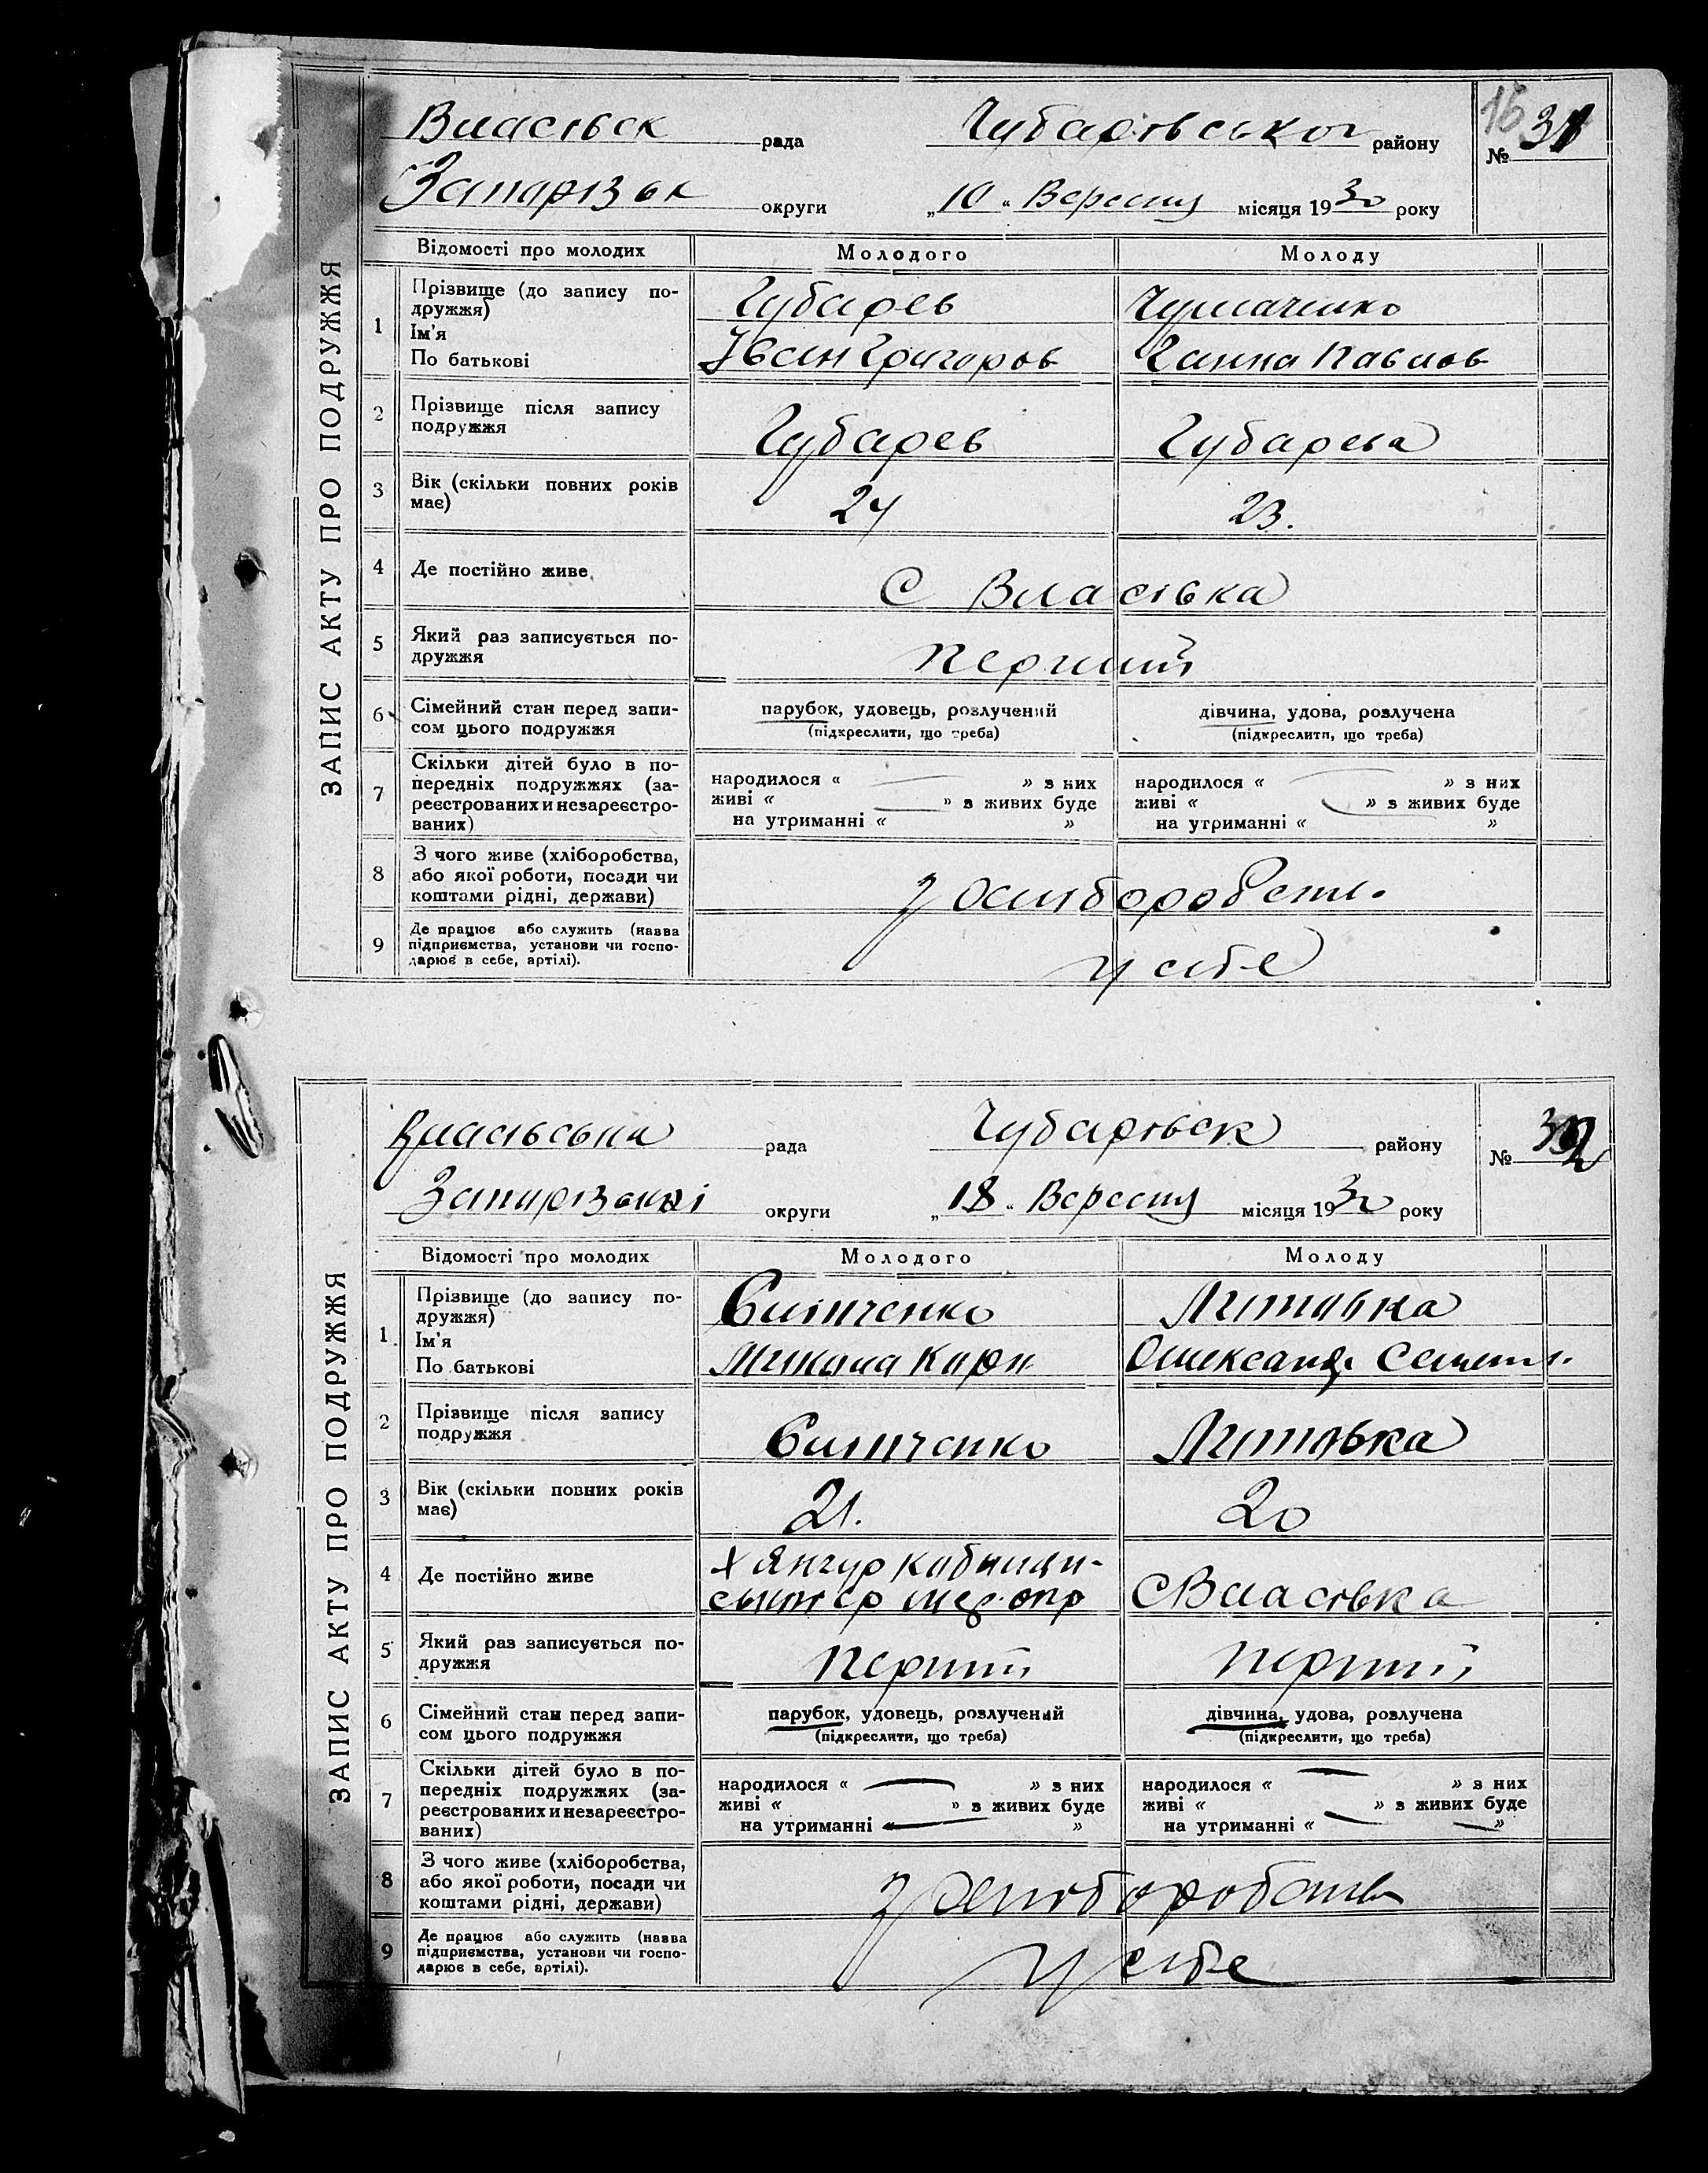 ЗАПИС АКТУ ПРО ПОДРУЖЖЯ
Власівск рада Чубарівського району
15
№ 31
Запорізьк округи „10" Вересня місяця 1930 року
Відомості про молодих Молодого Молоду
1 Прізвище (до запису по-
дружжя)
Ім'я
По батькові
Губарев
Іван Григоров
Чумаченко
Ганна Павлов
2 Прізвище після запису
подружжя
Губарев Губарева
3 Вік (скільки повних років
має)
24 23.
4 Де постійно живе
С Власівка
5 Який раз записується по-
дружжя
перший
6 Сімейний стан перед запи-
сом цього подружжя
парубок, удовець, розлучений
(підкреслити, що треба)
дівчина, удова, розлучена
(підкреслити, що треба)
7 Скільки дітей було в по-
передніх подружжях (за-
реєстрованих и незареєстро-
ваних)
народилося « » з них
живі « » з живих буде
на утриманні « »
народилося « » з них
живі « » з живих буде
на утриманні « »
8 З чого живе (хліборобства,
або якої роботи, посади чи
коштами рідні, держави)
з хліборобств.
9 Де працює або служить (назва
підприємства, установи чи госпо-
дарює в себе, артілі).
у себе
ЗАПИС АКТУ ПРО ПОДРУЖЖЯ
Власівська рада Чубарівск району
№ 32
Запорізької округи „18" Вересня місяця 1930 року
Відомості про молодих Молодого Молоду
1 Прізвище (до запису по-
дружжя)
Ім'я
По батькові
Микола Карп
Литовка
Олександ. Семен.
2 Прізвище після запису
подружжя
Литовка
3 Вік (скільки повних років
має)
21. 20
4 Де постійно живе
Х Янгур
С Власівка
5 Який раз записується по-
дружжя
перший перший
6 Сімейний стан перед запи-
сом цього подружжя
парубок, удовець, розлучений
(підкреслити, що треба)
дівчина, удова, розлучена
(підкреслити, що треба)
7 Скільки дітей було в по-
передніх подружжях (за-
реєстрованих и незареєстро-
ваних)
народилося « » з них
живі « » з живих буде
на утриманні « »
народилося « » з них
живі « » з живих буде
на утриманні « »
8 З чого живе (хліборобства,
або якої роботи, посади чи
коштами рідні, держави)
з хліборобств
9 Де працює або служить (назва
підприємства, установи чи госпо-
дарює в себе, артілі).
у себе